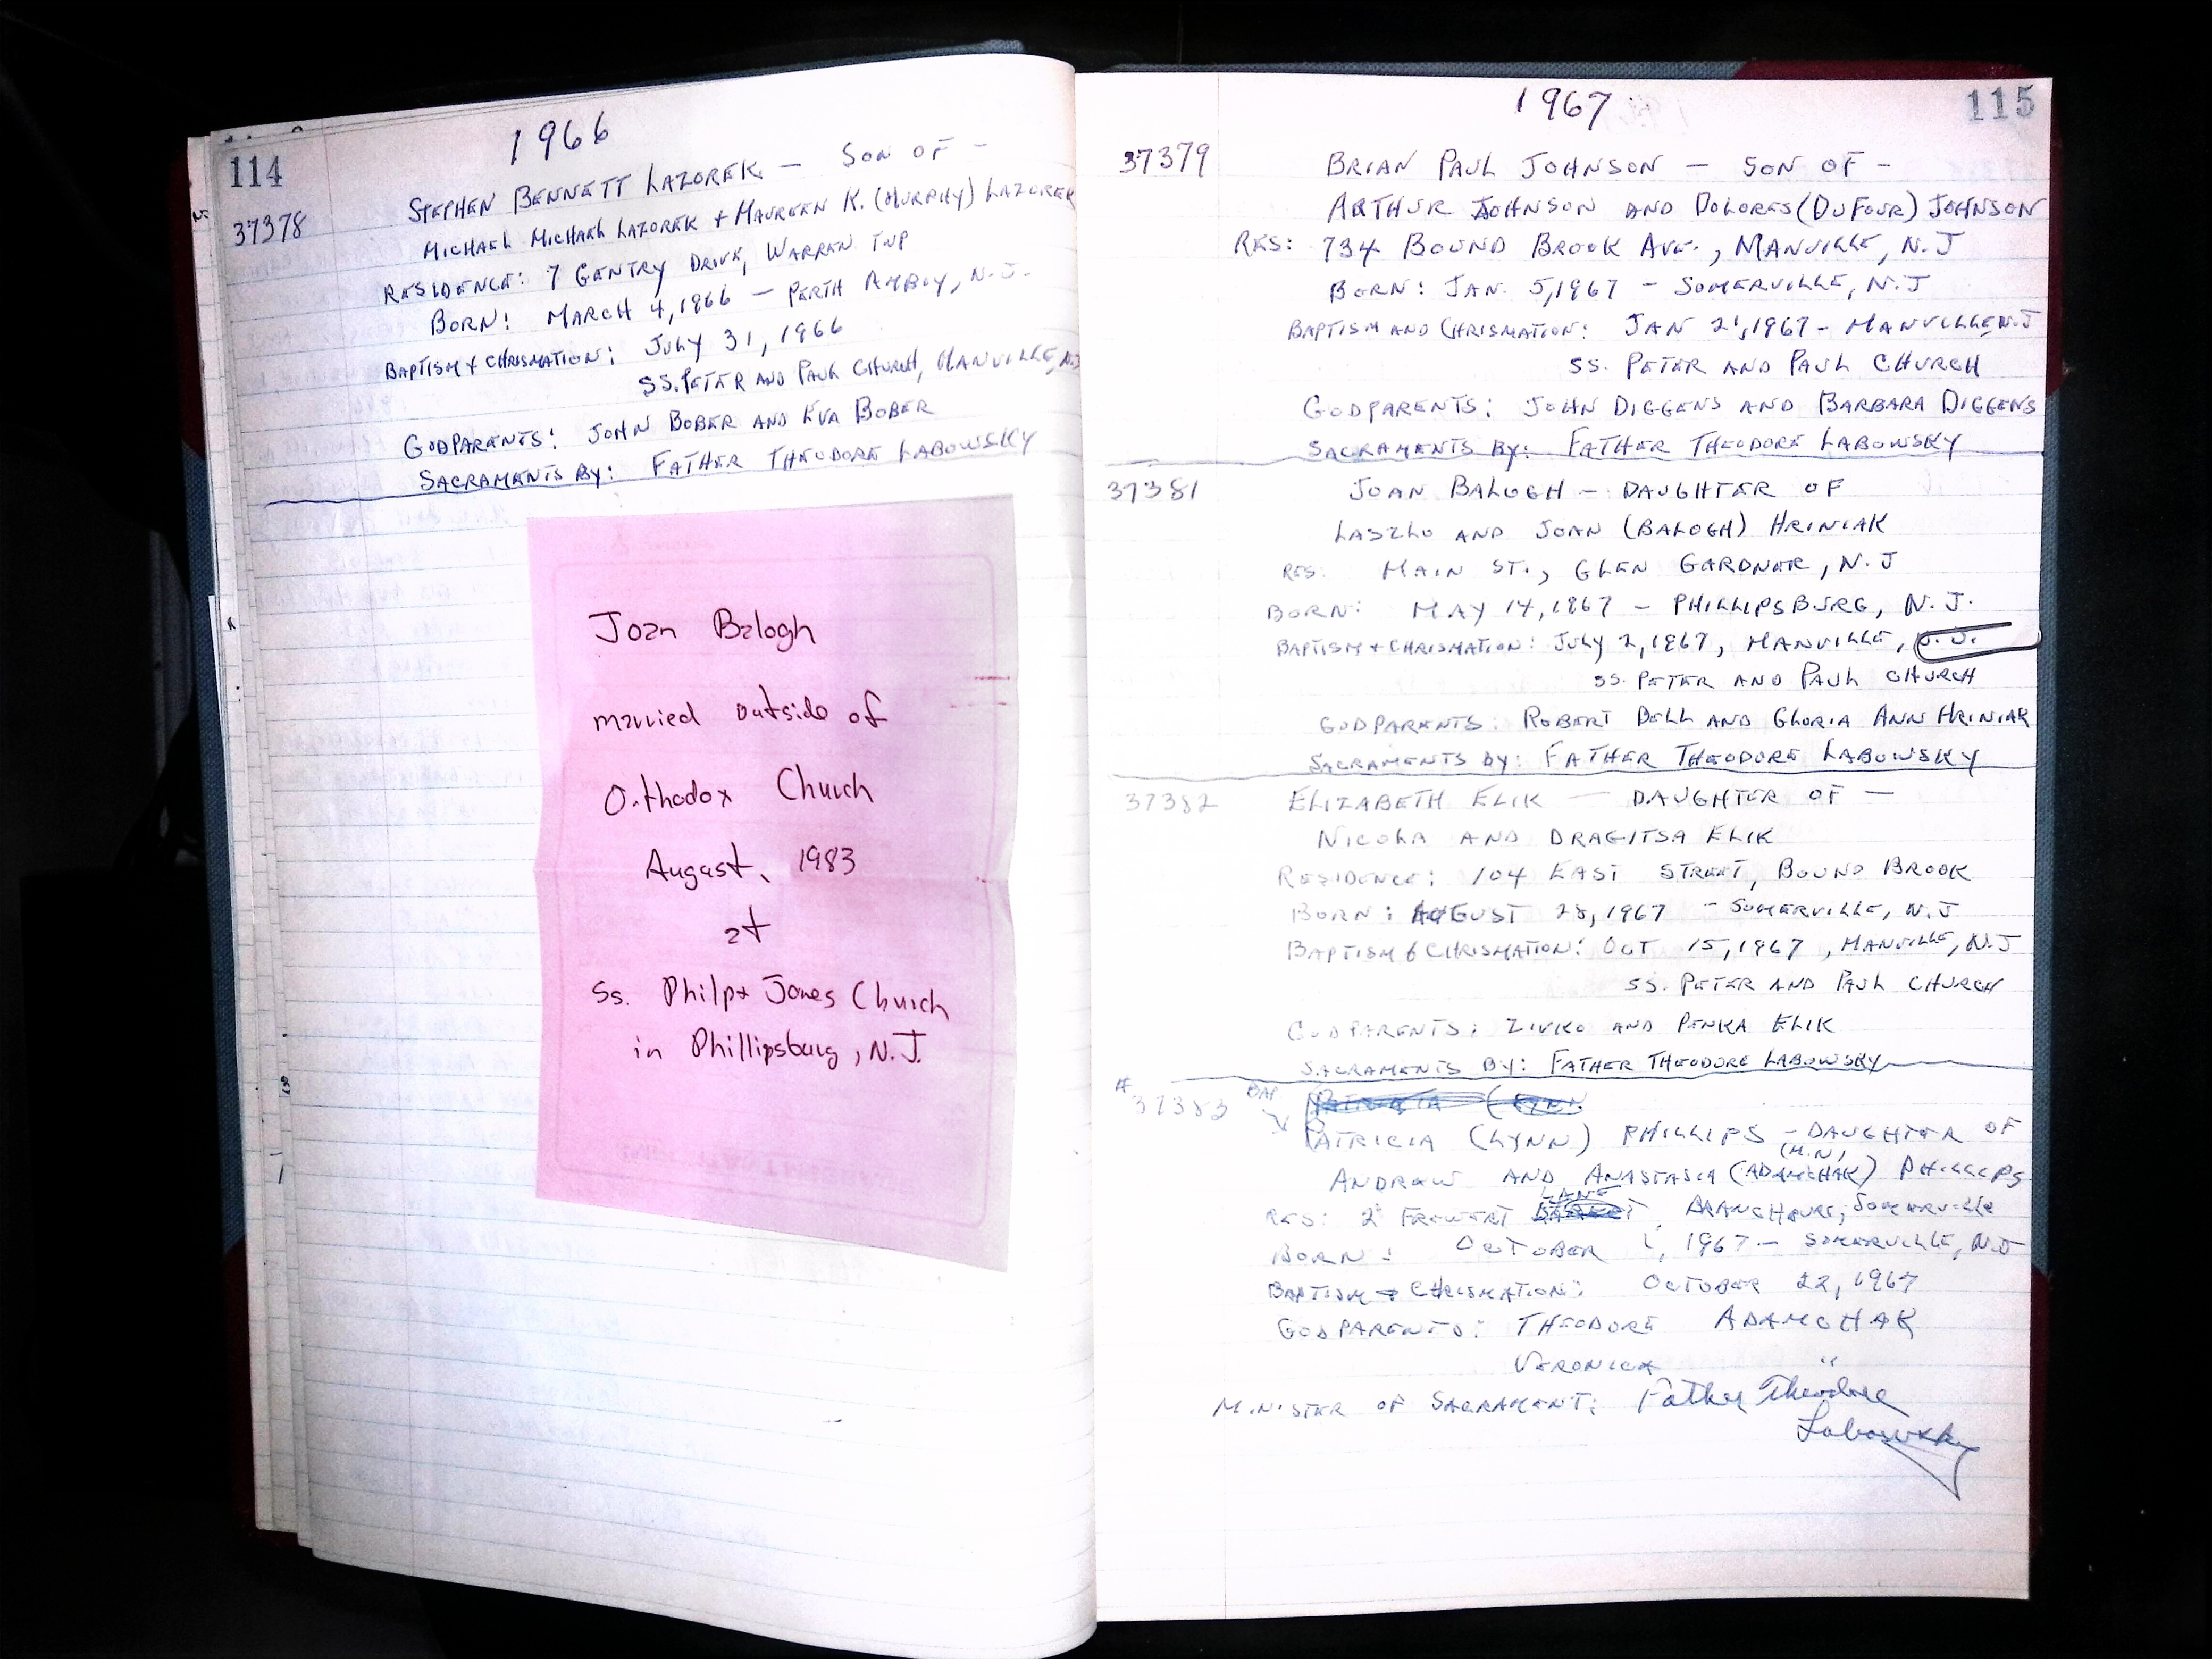 114
1966
37378
STEPHEN BENNETT LAZOREK — SON OF -
MICHAEL MICHAEL LAZOREK + MAUREEN K. (MURPHY) LAZOREK
RESIDENCE: 7 GENTRY DRIVE, WARREN TWP
BORN: MARCH 4, 1966 — PERTH AMBOY, N.J.
BAPTISM & CHRISMATION: JULY 31, 1966
SS. PETER AND PAUL CHURCH, MANVILLE, N.J
GODPARENTS: JOHN BOBER AND EVA BOBER
SACRAMENTS BY: FATHER THEODORE LABOWSKY
Joan Balogh
married outside of
Orthodox Church
August, 1983
at
Ss. Philp + James Church
in Phillipsburg, N.J.
1967
115
37379
BRIAN PAUL JOHNSON — SON OF -
ARTHUR JOHNSON AND DOLORES (DUFOUR) JOHNSON
RES: 734 BOUND BROOK AVE., MANVILLE, N.J
BORN: JAN. 5, 1967 - SOMERVILLE, N.J
BAPTISM AND CHRISMATION: JAN 21, 1967 - MANVILLE N.J
SS. PETER AND PAUL CHURCH
GODPARENTS: JOHN DIGGENS AND BARBARA DIGGENS
SACRAMENTS BY: FATHER THEODORE LABOWSKY
37381
JOAN BALOGH - DAUGHTER OF
LASZLO AND JOAN (BALOGH) HRINIAK
RES. MAIN ST., GLEN GARDNER, N.J
BORN: MAY 14, 1967 - PHILLIPSBURG, N.J.
BAPTISM + CHRISMATION: JULY 2, 1967, MANVILLE, N.J.
SS. PETER AND PAUL CHURCH
GODPARENTS: ROBERT DOLL AND GLORIA ANN HRINIAK
SACRAMENTS BY: FATHER THEODORE LABOWSKY
37382
ELIZABETH ELIK — DAUGHTER OF —
NICOLA AND DRAGITSA ELIK
RESIDENCE: 104 EAST STREET, BOUND BROOK
BORN: AUGUST 28, 1967 - SOMERVILLE, N.J
BAPTISM & CHRISMATION: OCT 15, 1967, MANVILLE, N.J
SS. PETER AND PAUL CHURCH
GODPARENTS: ZIVKO AND PENKA ELIK
SACRAMENTS BY: FATHER THEODORE LABOWSKY
# 37383
BAP.
PATRICIA (LYNN) PHILLIPS - DAUGHTER OF
(M.N)
ANDREW AND ANASTASIA (ADAMCHAK) PHILLIPS
LANE
RES: FREWERT, BRANCHBURG, SOMERVILLE
BORN: OCTOBER 1, 1967 - SOMERVILLE, N.J
BAPTISM & CHRISMATION: OCTOBER 22, 1967
GODPARENTS: THEODORE ADAMCHAK
VERONICA "
MINISTER OF SACRAMENT: Father Theodore
Labowsky